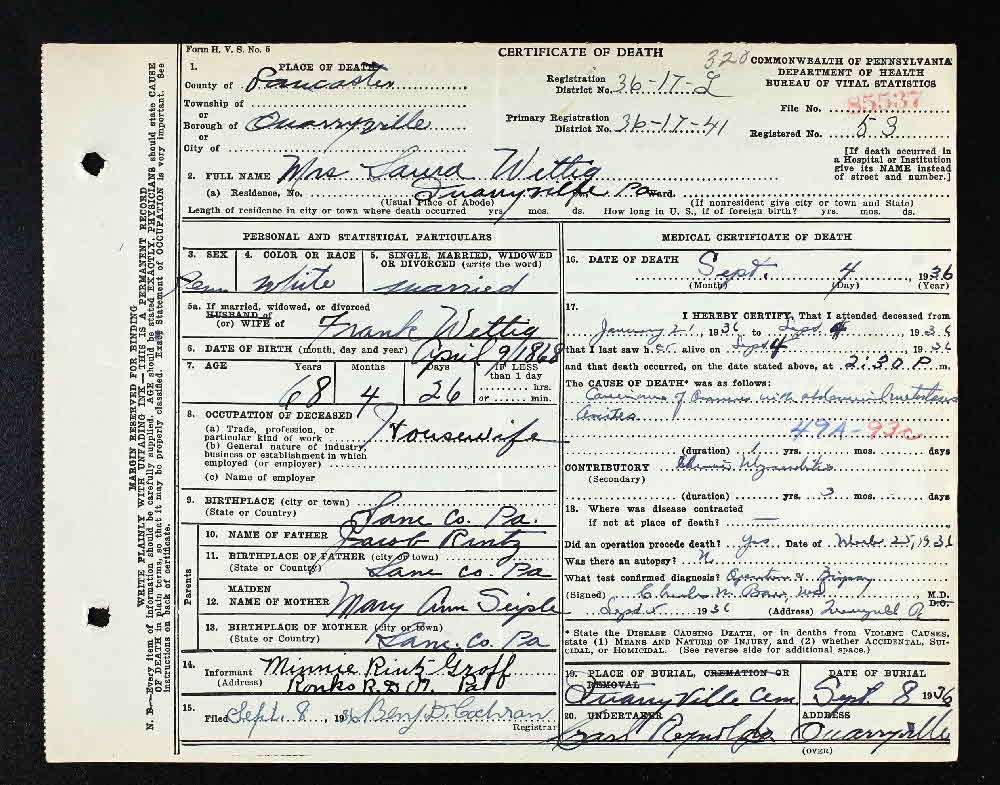 Form H. V. S. No. 5
CERTIFICATE OF DEATH
320
COMMONWEALTH OF PENNSYLVANIA
DEPARTMENT OF HEALTH
BUREAU OF VITAL STATISTICS
1. PLACE OF DEATH
County of Lancaster
Township of
or
Borough of Quarryville
or
City of
Registration
District No. 36-17-L
Primary Registration
District No. 36-17-41
File No. 85537
Registered No. 53
[If death occurred in
a Hospital or Institution
give its NAME instead
of street and number.]
2. FULL NAME Mrs Laura Wettig
(a) Residence, No. Quarryville Pa Ward.
(Usual Place of Abode) (If nonresident give city or town and State)
Length of residence in city or town where death occurred yrs. mos. ds. How long in U. S., if of foreign birth? yrs. mos. ds.
PERSONAL AND STATISTICAL PARTICULARS
3. SEX Fem
4. COLOR OR RACE White
5. SINGLE, MARRIED, WIDOWED
OR DIVORCED (write the word)
married
5a. If married, widowed, or divorced
HUSBAND of
(or) WIFE of Frank Wettig
6. DATE OF BIRTH (month, day and year) April 9 1868
7. AGE Years Months Days IF LESS
than 1 day
hrs.
or min.
68 4 26
8. OCCUPATION OF DECEASED
(a) Trade, profession, or
particular kind of work Housewife
(b) General nature of industry,
business or establishment in which
employed (or employer)
(c) Name of employer
9. BIRTHPLACE (city or town)
(State or Country) Lanc Co. Pa.
Parents
10. NAME OF FATHER Jacob Rintz
11. BIRTHPLACE OF FATHER (city or town)
(State or Country) Lanc Co. Pa
MAIDEN
12. NAME OF MOTHER Mary Ann Seiple
13. BIRTHPLACE OF MOTHER (city or town)
(State or Country) Lanc. Co. Pa
14.
Informant Minnie Rintz Groff
(Address) Ronks R.D. Pa
15.
Filed Sept. 8, 1936 Benj. D. Cochran
Registrar
MEDICAL CERTIFICATE OF DEATH
16. DATE OF DEATH Sept. 4, 1936
(Month) (Day) (Year)
17.
I HEREBY CERTIFY, That I attended deceased from
January 21, 1936 to Sept 4 1936
that I last saw her alive on Sept 4 1936
and that death occurred, on the date stated above, at 2.30 P m.
The CAUSE OF DEATH* was as follows:
Carcinoma of Ovaries with abdominal metastases
Ascites
49A-93c
(duration) 1 yrs. mos. days
CONTRIBUTORY Chronic Myocarditis
(Secondary)
(duration) yrs. 3 mos. days
18. Where was disease contracted
if not at place of death? —
Did an operation precede death? Yes Date of March 25, 1936
Was there an autopsy? No
What test confirmed diagnosis? Operation & Biopsy
(Signed) Charles M. M.D. M.D.
D.O.
Sept 5 1936 (Address)
* State the DISEASE CAUSING DEATH, or in deaths from VIOLENT CAUSES,
state (1) MEANS AND NATURE OF INJURY, and (2) whether ACCIDENTAL, SUI-
CIDAL, or HOMICIDAL. (See reverse side for additional space.)
19. PLACE OF BURIAL, CREMATION OR
REMOVAL
Quarryville Cem
DATE OF BURIAL
Sept. 8 1936
20. UNDERTAKER
Carl Reynolds
ADDRESS
Quarryville
(OVER)
MARGIN RESERVED FOR BINDING
WRITE PLAINLY WITH UNFADING INK—THIS IS A PERMANENT RECORD
N. B.—Every item of information should be carefully supplied. AGE should be stated EXACTLY. PHYSICIANS should state CAUSE
OF DEATH in plain terms, so that it may be properly classified. Exact Statement of OCCUPATION is very important. See
instructions on back of certificate.